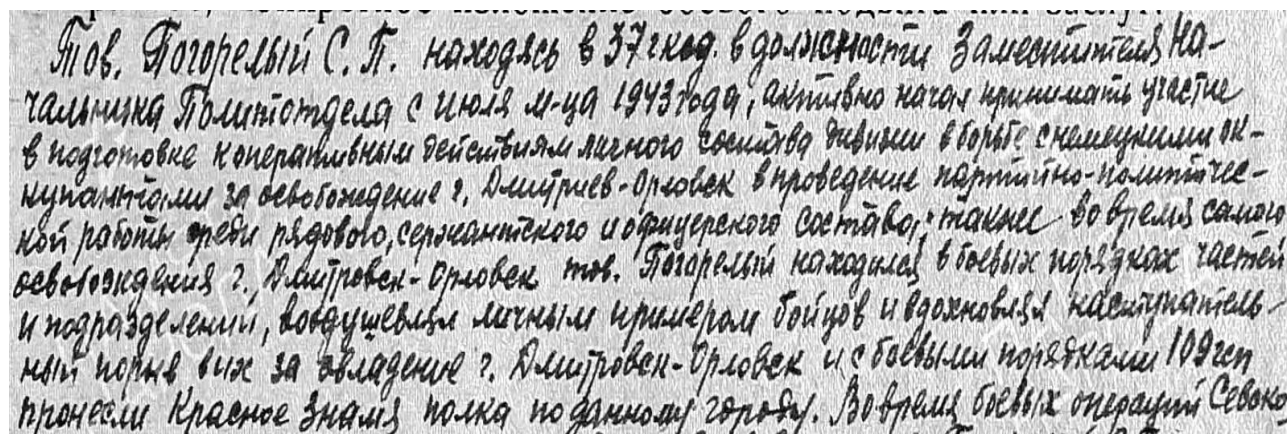 Тов. Погорелый С. П. находясь в 37 гксд. в должности Заместителя На-
чальника Политотдела с июля м-ца 1943 года, активно начал принимать участие
в подготовке к оперативным действиям личного состава дивизии в борьбе с немецкими ок-
купантами за освобождение г. Дмитриев-Орловск в проведение партийно-политичес-
кой работы среди рядового, сержантского и офицерского состава, также во время самого
освобождения г. Дмитровск-Орловск тов. Погорелый находился в боевых порядках частей
и подразделений, воодушевляя личным примером бойцов и вдохновляя наступатель-
ный порыв в их за овладение г. Дмитровск-Орловск и с боевыми порядками 109 гсп
пронесли Красное Знамя полка по данному городу. Во время боевых операций Севско